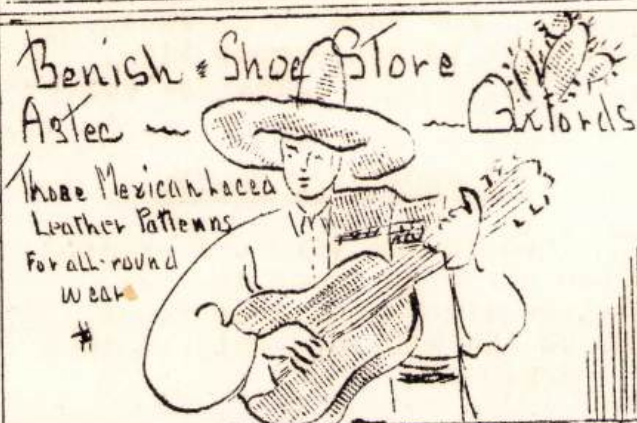 Benish & Shoe Store
Aztec ~ ~ Oxfords
Those Mexican Laced
Leather Patterns
For all-round
wear
#